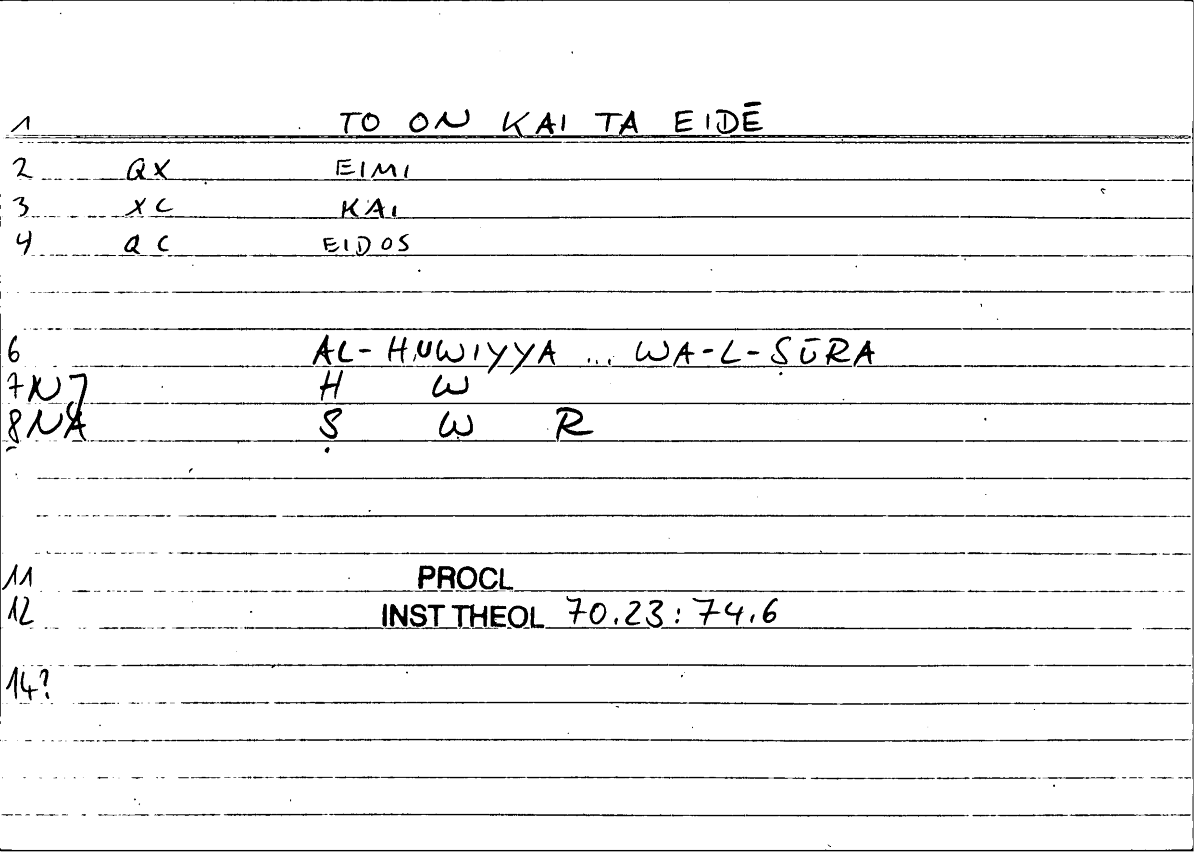 1 TO ON KAI TA EIDĒ
2 QX EIMI
3 XC KAI
4 QC EIDOS
6 AL-HUWIYYA ... WA-L-ṢŪRA
7 N H W
8 NA Ṣ W R
11 PROCL
12 INST THEOL 70.23:74.6
14?